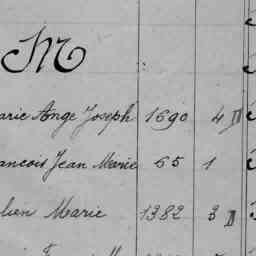 M
arie Ange Joseph 1690 4 D
ancois Jean Marie 65 1
lien Marie 1382 3 D